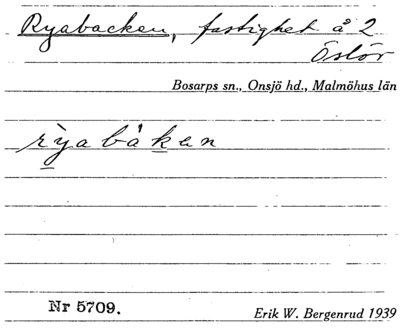 Ryabacken, fastighet å 2
Öslöv
Bosarps sn., Onsjö hd., Malmöhus län
rỳabákan
Nr 5709.
Erik W. Bergenrud 1939